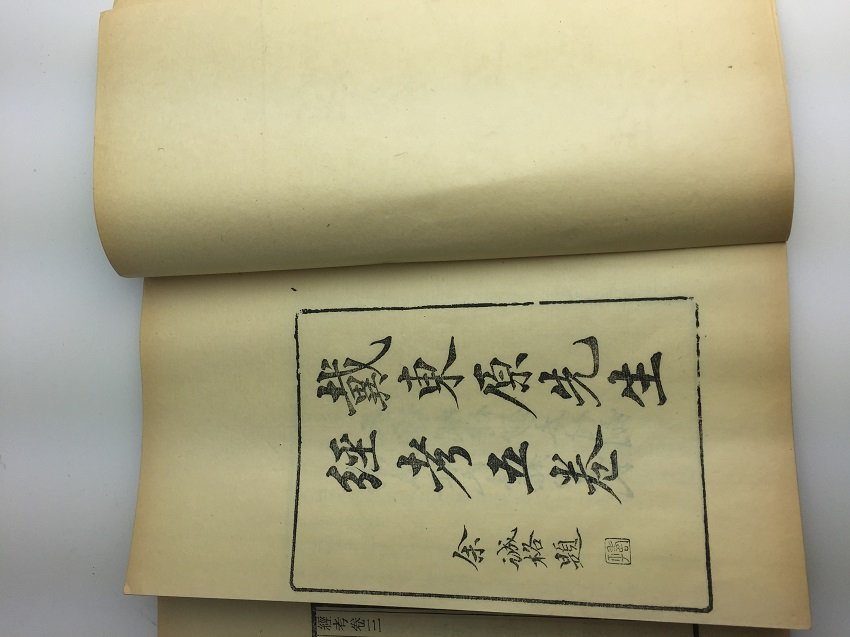 戴東原先生
經考五卷
余誠格題
經考卷三